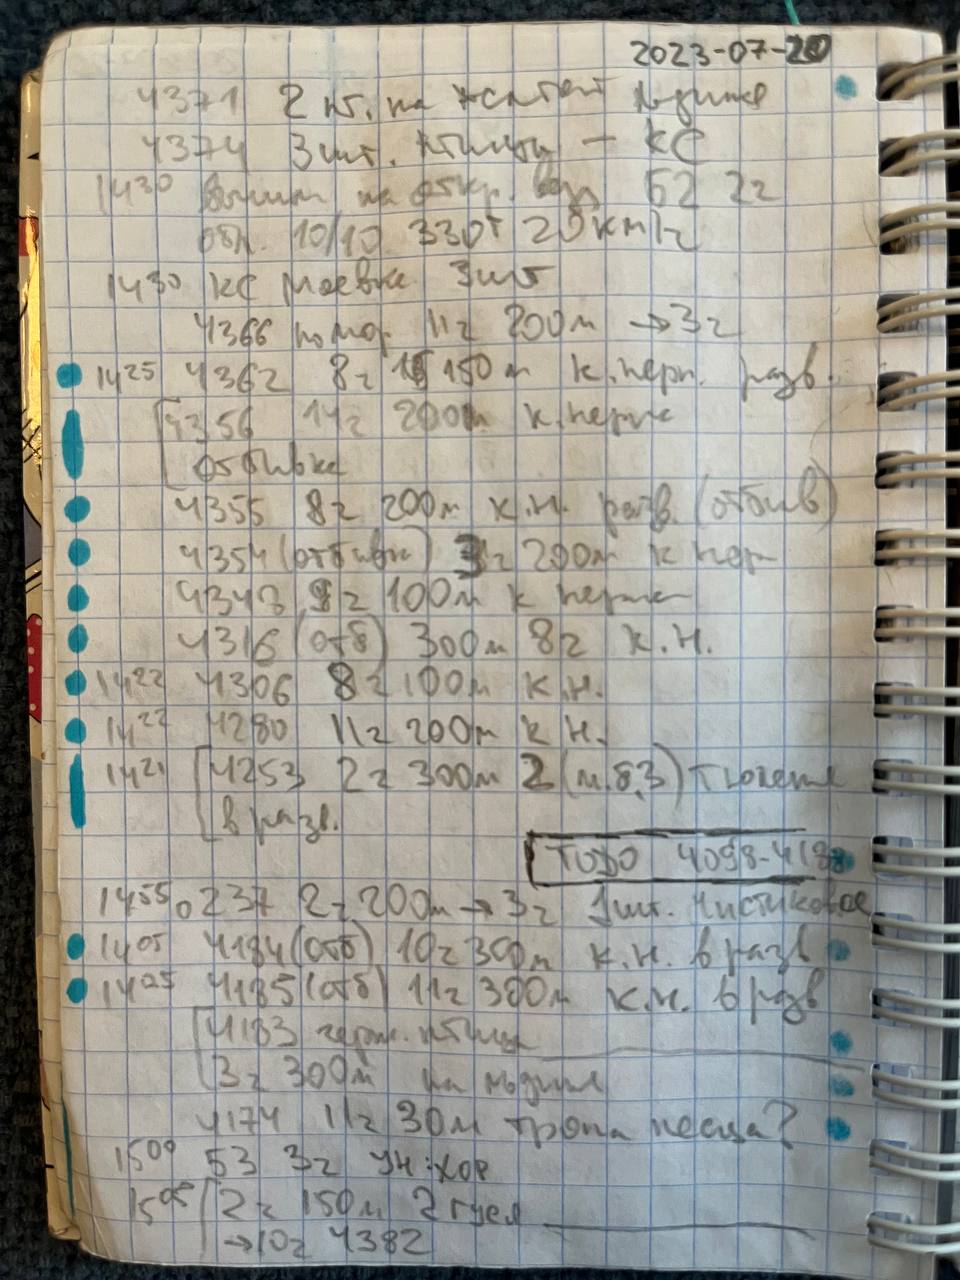 2023-07-20
4371 2 шт. на желтой льдине
4374 3 шт. птицы – КС
14³⁰ вышли на откр. воду Б2 2г
обл. 10/10 330т 20км/г
14³⁰ КС моевка 3шт
4366 помор 11г 200м →3г
14²⁵ 4362 8г 150м к.нерп. разв.
4356 11г 200м к.нерпа
отбивка
4355 8г 200м к.н. разв. (отбив)
4354 (отбивк) 3г 200м к нер
4343 9г 100м к нерпа
4316 (отб) 300м 8г к.н.
14²² 4306 8г 100м к.н.
14²² 4280 11г 200м к н.
14²¹ 4253 2г 300м 2 (м.б.3) тюленя
в разв.
TODO 4098-418
14⁵⁵ 0237 2г 200м →3г 1шт. чистиковое
14⁰⁵ 4184 (отб) 10г 350м к.н. в разв
14⁰⁵ 4185 (отб) 11г 300м к.н. в разв
4183 черн. птица
3г 300м на льдине
4174 11г 30м тропа песца?
15⁰⁹ 53 3г УН:ХОР
15⁰⁵ 2г 150м 2 гуся
→10г 4382